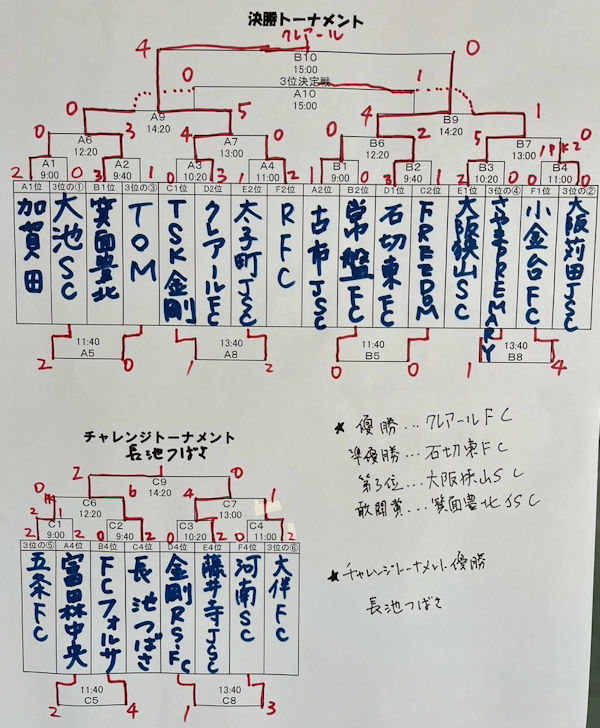 決勝トーナメント
クレアール
4 0
B10
15:00
3位決定戦
0 1
A10
15:00
0 A9 5 4 B9 1
14:20 14:20
0 A6 3 4 A7 0 0 B6 2 5 B7 0
12:20 13:00 12:20 13:00
1PK2
2 A1 0 3 A2 1 0 A3 3 1 A4 0 1 B1 0 0 B2 2 3 B3 0 B4
9:00 9:40 10:20 11:00 9:00 9:40 10:20 11:00
A1位 3位の① B1位 3位の③ C1位 D2位 E2位 F2位 A2位 B2位 D1位 C2位 E1位 3位の④ F1位 3位の②
加賀田
大池SC
箕面豊北
TOM
TSK金剛
クレアールFC
太子町JSC
RFC
古市JSC
常盤FC
石切東FC
FREEDOM
大阪狭山SC
さやまPREMARY
小金台FC
大阪苅田JSC
2 11:40 0 1 13:40 2 0 11:40 0 1 13:40 4
A5 A8 B5 B8
★優勝...クレアールFC
準優勝...石切東FC
第3位...大阪狭山SC
敢闘賞...箕面豊北JSC
★チャレンジトーナメント優勝
長池つばさ
チャレンジトーナメント
長池つばさ
2 C9 0
14:20
0 C6 6 4 C7 1
12:20 13:00
C1 2 0 C2 4 2 C3 0 0 C4 2
9:00 9:40 10:20 11:00
3位の⑤ A4位 B4位 C4位 D4位 E4位 F4位 3位の⑥
五条FC
富田林中央
FCフォルサ
長池つばさ
金剛RS-FC
藤井寺JSC
河南SC
大伴FC
2 11:40 4 1 13:40 3
C5 C8